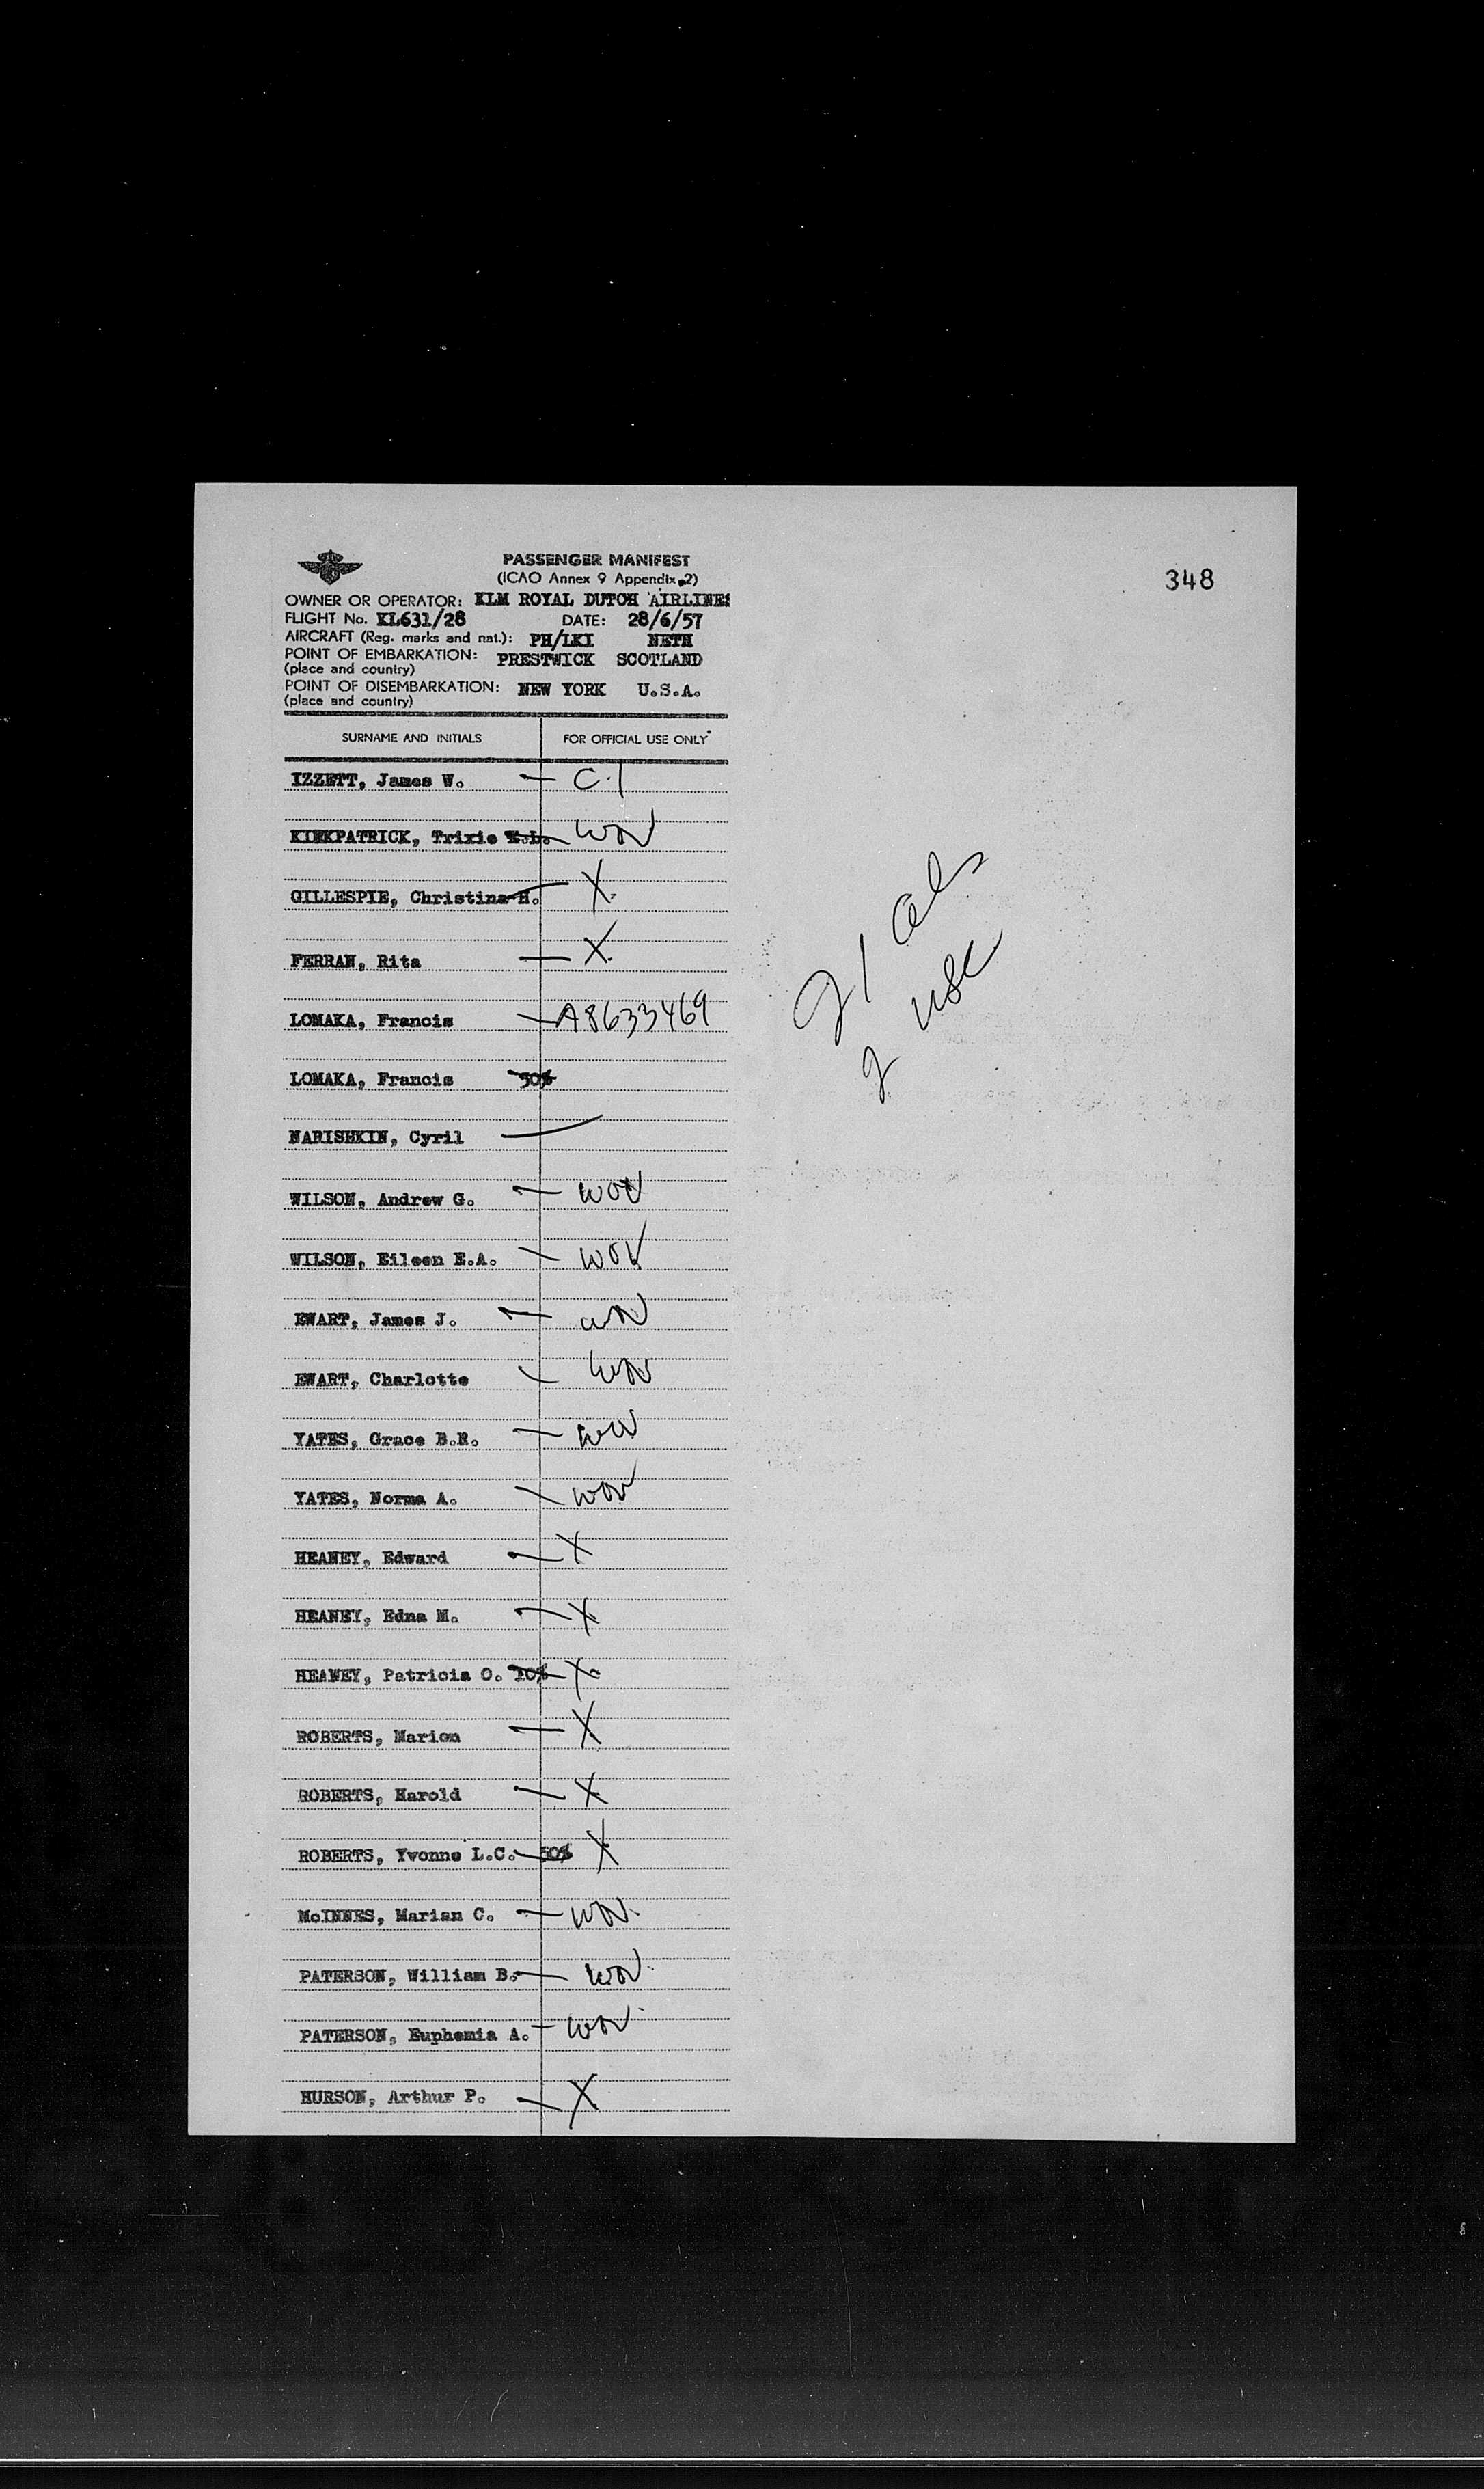 348
PASSENGER MANIFEST
(ICAO Annex 9 Appendix 2)
OWNER OR OPERATOR: KLM ROYAL DUTCH AIRLINES
FLIGHT No. KL631/28 DATE: 28/6/57
AIRCRAFT (Reg. marks and nat.): PH/LKI NETH
POINT OF EMBARKATION: PRESTWICK SCOTLAND
(place and country)
POINT OF DISEMBARKATION: NEW YORK U.S.A.
(place and country)
SURNAME AND INITIALS FOR OFFICIAL USE ONLY
IZZETT, James W. — C.1
KIRKPATRICK, Trixie — WOV
GILLESPIE, Christina H. — X.
FERRAN, Rita — X.
LOMAKA, Francis — A8633469
LOMAKA, Francis 50%
NARISHKIN, Cyril —
WILSON, Andrew G. — WOV
WILSON, Eileen E.A. — WOV
EWART, James J. — WOV
EWART, Charlotte — WOV
YATES, Grace B.R. — WOV
YATES, Norma A. — WOV
HEANEY, Edward — X
HEANEY, Edna M. — X
HEANEY, Patricia O. 10% X
ROBERTS, Marion — X
ROBERTS, Harold — X
ROBERTS, Yvonne L.C. 50% X
McINNES, Marian C. — WOV
PATERSON, William B. — WOV
PATERSON, Euphemia A. — WOV
HURSON, Arthur P. — X
21 als
2 USC